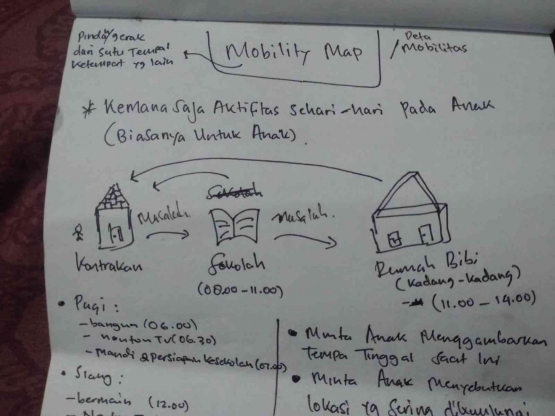 Pindah/gerak
dari satu tempat
ketempat yg lain
Mobility Map
Peta
Mobilitas
* Kemana Saja Aktifitas Sehari-hari Pada Anak
(Biasanya Untuk Anak).
Masalah
Sekolah
masalah.
Kontrakan
Sekolah
(08.00 - 11.00)
Rumah Bibi
(Kadang-kadang)
(11.00 - 14.00)
• Pagi :
- bangun (06.00)
- nonton TV (06.30)
- Mandi & Persiapan kesekolah (07.00)
• Siang :
- bermain (12.00)
• Minta Anak Menggambarkan
Tempa Tinggal Saat Ini
• Minta Anak Menyebutkan
lokasi yg sering dikunjungi